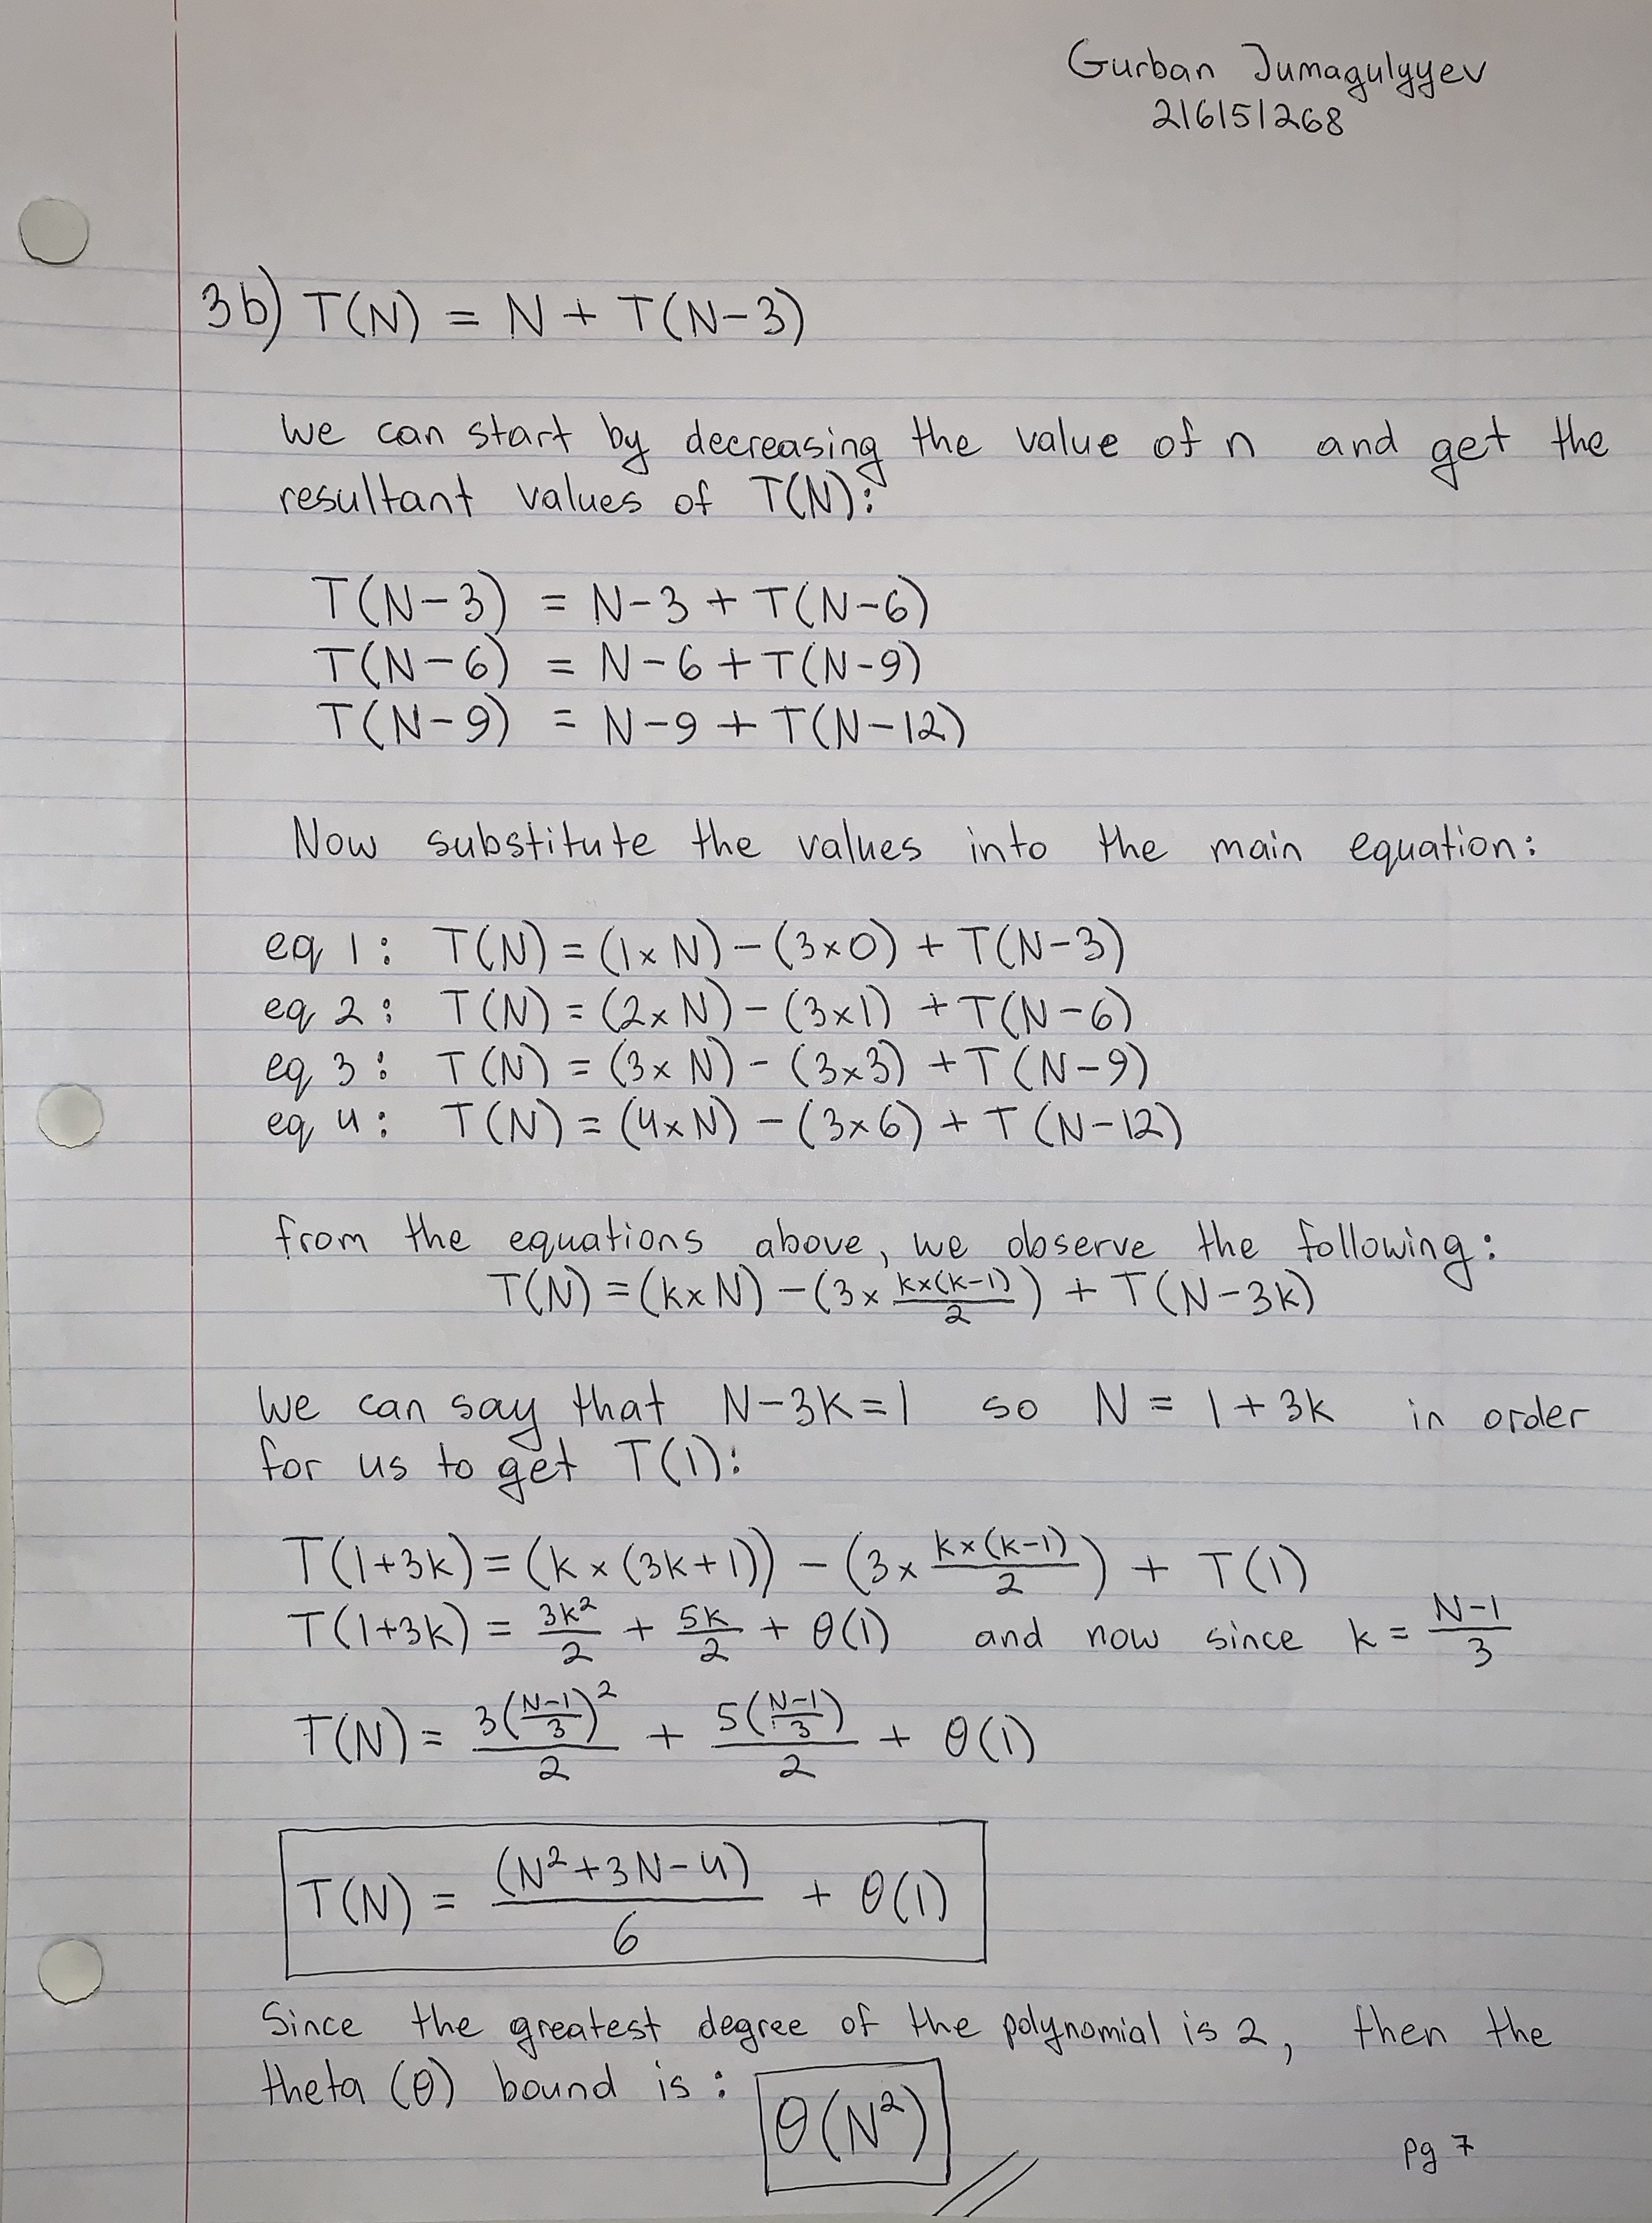 Gurban Jumagulyyev
216151268
3b) T(N) = N + T(N-3)
We can start by decreasing the value of n and get the
resultant values of T(N):
T(N-3) = N-3 + T(N-6)
T(N-6) = N-6 + T(N-9)
T(N-9) = N-9 + T(N-12)
Now substitute the values into the main equation:
eq 1: T(N) = (1×N) - (3×0) + T(N-3)
eq 2: T(N) = (2×N) - (3×1) + T(N-6)
eq 3: T(N) = (3×N) - (3×3) + T(N-9)
eq 4: T(N) = (4×N) - (3×6) + T(N-12)
from the equations above, we observe the following:
T(N) = (k×N) - (3× k×(k-1)/2) + T(N-3k)
We can say that N-3k=1 so N = 1+3k in order
for us to get T(1):
T(1+3k) = (k×(3k+1)) - (3× k×(k-1)/2) + T(1)
T(1+3k) = 3k²/2 + 5k/2 + θ(1) and now since k = N-1/3
T(N) = 3(N-1/3)²/2 + 5(N-1/3)/2 + θ(1)
T(N) = (N²+3N-4)/6 + θ(1)
Since the greatest degree of the polynomial is 2, then the
theta (θ) bound is: θ(N²)
pg 7